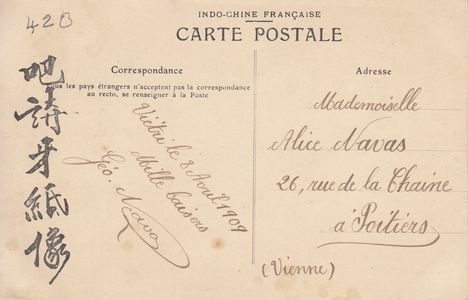 420
INDO-CHINE FRANÇAISE
CARTE POSTALE
Correspondance
Tous les pays étrangers n'acceptent pas la correspondance
au recto, se renseigner à la Poste
Viétri le 8 Avril 1909
Mille baisers
Géo. Navas
Adresse
Mademoiselle
Alice Navas
26, rue de la Chaine
à Poitiers
(Vienne)
牙紙像